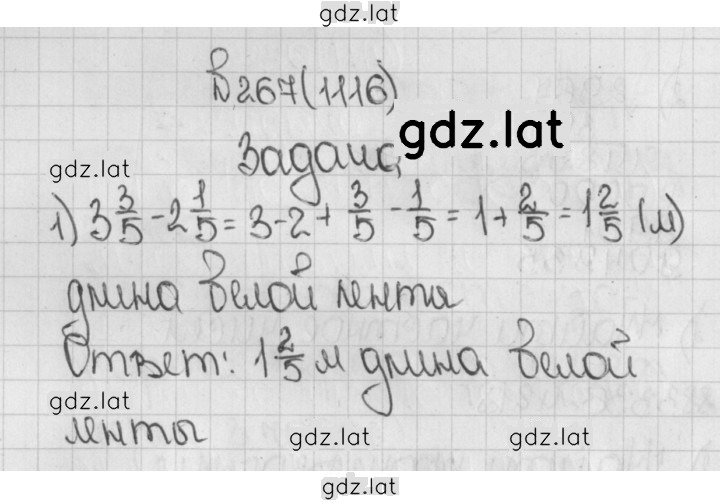 gdz.lat
№267(1116)
gdz.lat
gdz.lat
Задача
1) 3 3/5 - 2 1/5 = 3-2+ 3/5 - 1/5 = 1+ 2/5 = 1 2/5 (м)
gdz.lat gdz.lat
длина белой ленты
Ответ: 1 2/5 м длина белой
gdz.lat
ленты
gdz.lat gdz.lat
gdz.lat